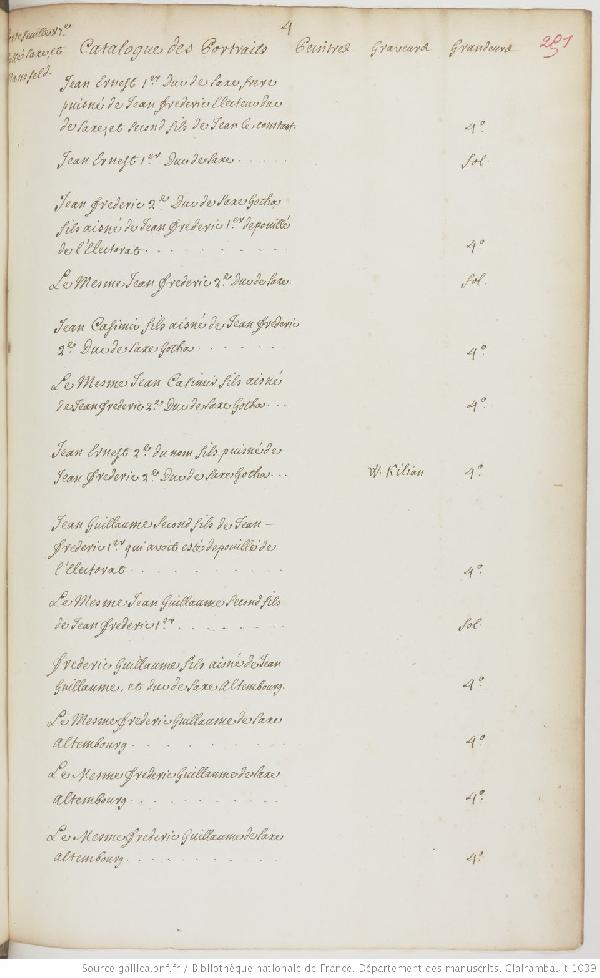 4
Catalogue des Portraits Peintres Graveurs Grandeurs 291
Saxe, et
Mansfeld.
Jean Ernest 1er Duc de Saxe, frere
puisné de Jean Frederic Electeur duc
de Saxe, et second fils de Jean le constant. 4o
Jean Ernest 1er Duc de Saxe . . . . . . fol.
Jean Frederic 2e Duc de Saxe Gotha,
fils aisné de Jean Frederic 1er depouillé
de l'Electorat . . . . . . . . . 4o
Le Mesme Jean Frederic 2e duc de Saxe fol.
Jean Casimir fils aisné de Jean Frederic
2e Duc de Saxe Gotha . . . . . . 4o
Le Mesme Jean Casimir fils aisné
de Jean Frederic 2e Duc de Saxe Gotha . . . 4o
Jean Ernest 2e du nom fils puisné de
Jean Frederic 2e Duc de Saxe Gotha . . . W. Kilian 4o
Jean Guillaume second fils de Jean-
Frederic 1er qui avoit esté depouillé de
l'Electorat . . . . . . . . . . 4o
Le Mesme Jean Guillaume second fils
de Jean Frederic 1er . . . . . . . . fol.
Frederic Guillaume fils aisné de Jean
Guillaume, et duc de Saxe Altembourg. 4o
Le Mesme Frederic Guillaume de Saxe
Altembourg . . . . . . . . . . 4o
Le Mesme Frederic Guillaume de Saxe
Altembourg . . . . . . . . . . 4o
Le Mesme Frederic Guillaume de Saxe
Altembourg . . . . . . . . . . 4o
Source gallica.bnf.fr / Bibliothèque nationale de France. Département des manuscrits. Clairambault 1039